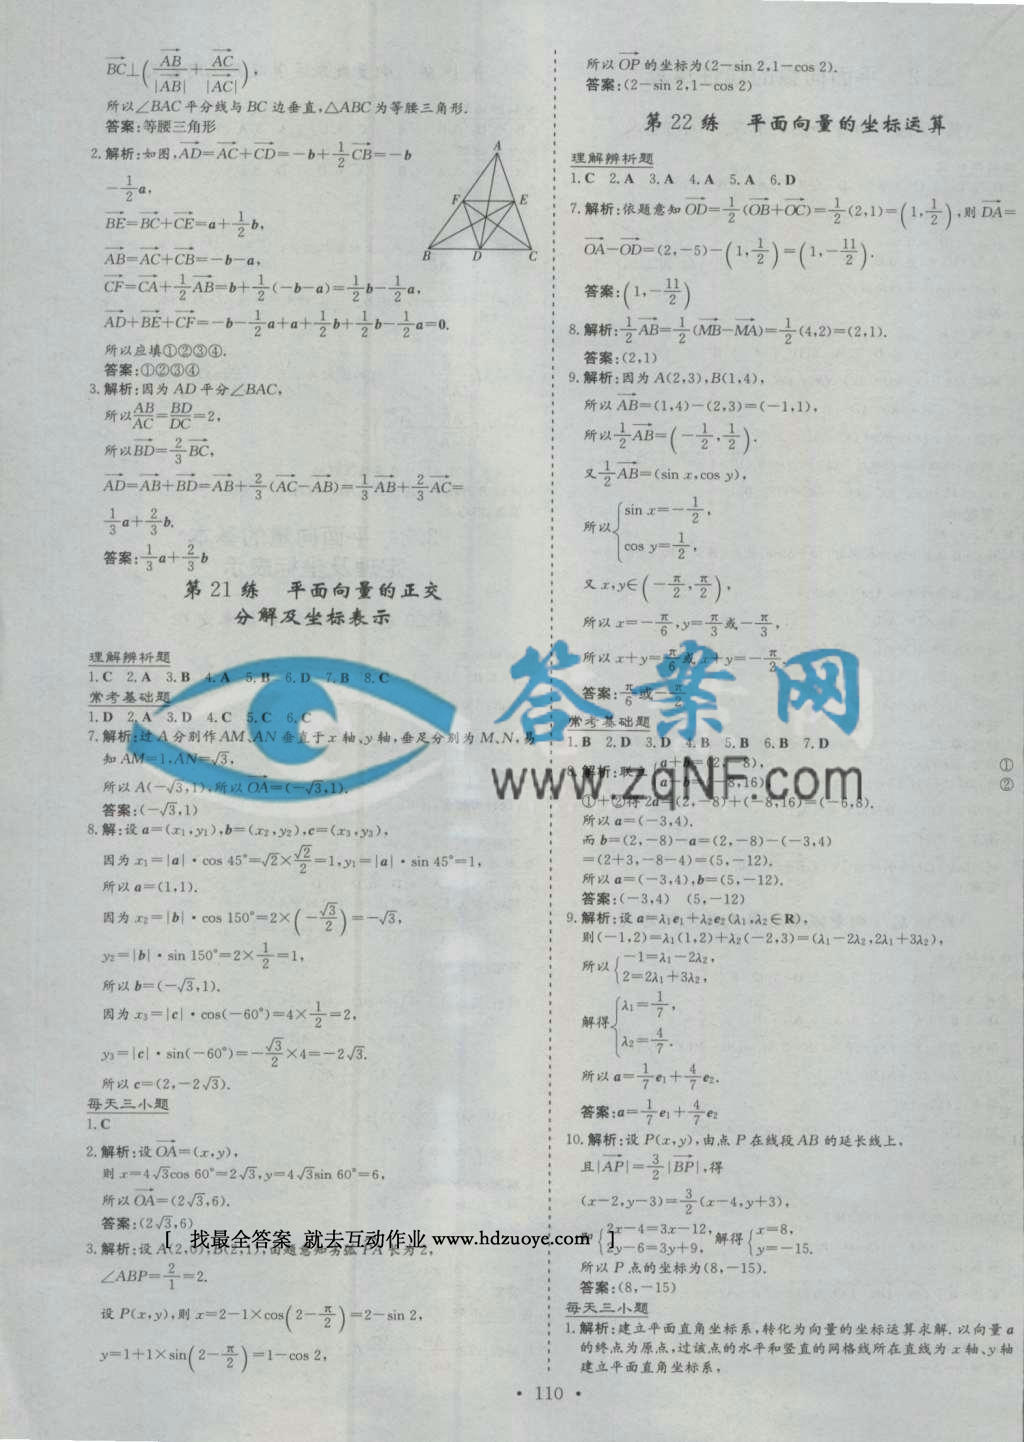 BC⊥(AB/|AB|+AC/|AC|),
所以∠BAC平分线与BC边垂直,△ABC为等腰三角形.
答案:等腰三角形
2.解析:如图,AD=AC+CD=-b+1/2CB=-b
-1/2a,
BE=BC+CE=a+1/2b,
AB=AC+CB=-b-a,
CF=CA+1/2AB=b+1/2(-b-a)=1/2b-1/2a,
AD+BE+CF=-b-1/2a+a+1/2b+1/2b-1/2a=0.
所以应填①②③④.
答案:①②③④
A
F
E
B
D
C
3.解析:因为AD平分∠BAC,
所以AB/AC=BD/DC=2,
所以BD=2/3BC,
AD=AB+BD=AB+2/3(AC-AB)=1/3AB+2/3AC=
1/3a+2/3b.
答案:1/3a+2/3b
第21练 平面向量的正交
分解及坐标表示
理解辨析题
1.C 2.A 3.B 4.A 5.B 6.D 7.B 8.C
常考基础题
1.D 2.A 3.D 4.C 5.C 6.C
7.解析:过A分别作AM、AN垂直于x轴、y轴,垂足分别为M、N,易
知AM=1,AN=√3,
所以A(-√3,1),所以OA=(-√3,1).
答案:(-√3,1)
8.解:设a=(x1,y1),b=(x2,y2),c=(x3,y3),
因为x1=|a|·cos 45°=√2×√2/2=1,y1=|a|·sin 45°=1,
所以a=(1,1).
因为x2=|b|·cos 150°=2×(-√3/2)=-√3,
y2=|b|·sin 150°=2×1/2=1,
所以b=(-√3,1).
因为x3=|c|·cos(-60°)=4×1/2=2,
y3=|c|·sin(-60°)=-√3/2×4=-2√3.
所以c=(2,-2√3).
每天三小题
1.C
2.解析:设OA=(x,y),
则x=4√3cos 60°=2√3,y=4√3sin 60°=6,
所以OA=(2√3,6).
答案:(2√3,6)
3.解析:设A(2,0),B(2,1),由题意知劣弧PA长为2,
∠ABP=2/1=2.
设P(x,y),则x=2-1×cos(2-π/2)=2-sin 2,
y=1+1×sin(2-π/2)=1-cos 2,
所以OP的坐标为(2-sin 2,1-cos 2).
答案:(2-sin 2,1-cos 2)
第22练 平面向量的坐标运算
理解辨析题
1.C 2.A 3.A 4.A 5.A 6.D
7.解析:依题意知OD=1/2(OB+OC)=1/2(2,1)=(1,1/2),则DA=
OA-OD=(2,-5)-(1,1/2)=(1,-11/2).
答案:(1,-11/2)
8.解析:1/2AB=1/2(MB-MA)=1/2(4,2)=(2,1).
答案:(2,1)
9.解析:因为A(2,3),B(1,4),
所以AB=(1,4)-(2,3)=(-1,1),
所以1/2AB=(-1/2,1/2).
又1/2AB=(sin x,cos y),
所以{sin x=-1/2,
cos y=1/2,
又x,y∈(-π/2,π/2),
所以x=-π/6,y=π/3或-π/3,
所以x+y=π/6或x+y=-π/2.
答案:π/6或-π/2
常考基础题
1.B 2.D 3.D 4.B 5.B 6.B 7.D
8.解析:联立{a+b=(2,-8), ①
a-b=(-8,16), ②
①+②得2a=(2,-8)+(-8,16)=(-6,8).
所以a=(-3,4).
而b=(2,-8)-a=(2,-8)-(-3,4)
=(2+3,-8-4)=(5,-12).
所以a=(-3,4),b=(5,-12).
答案:(-3,4) (5,-12)
9.解析:设a=λ1e1+λ2e2(λ1,λ2∈R),
则(-1,2)=λ1(1,2)+λ2(-2,3)=(λ1-2λ2,2λ1+3λ2),
所以{-1=λ1-2λ2,
2=2λ1+3λ2,
解得{λ1=1/7,
λ2=4/7.
所以a=1/7e1+4/7e2.
答案:a=1/7e1+4/7e2
10.解析:设P(x,y),由点P在线段AB的延长线上,
且|AP|=3/2|BP|,得
(x-2,y-3)=3/2(x-4,y+3),
即{2x-4=3x-12, 解得{x=8,
2y-6=3y+9, y=-15.
所以P点的坐标为(8,-15).
答案:(8,-15)
每天三小题
1.解析:建立平面直角坐标系,转化为向量的坐标运算求解.以向量a
的终点为原点,过该点的水平和竖直的网格线所在直线为x轴、y轴
建立平面直角坐标系,
• 110 •
答案网
www.zqNF.com
[ 找最全答案 就去互动作业 www.hdzuoye.com ]